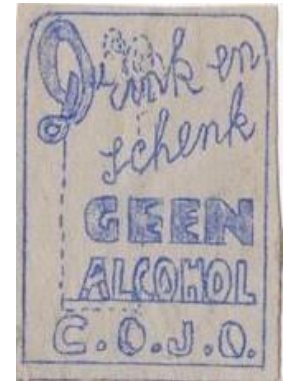 Drink en
schenk
GEEN
ALCOHOL
C.O.J.O.